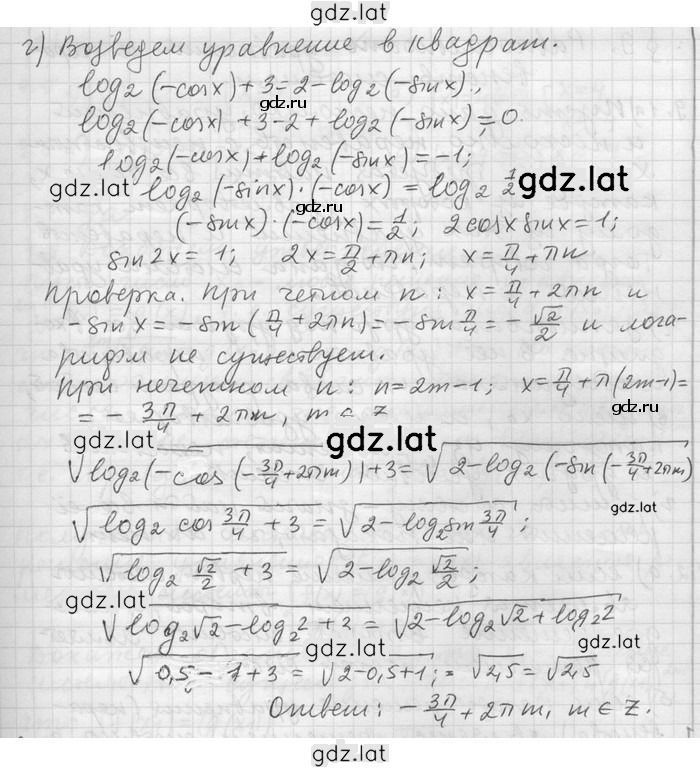 gdz.lat
г) Возведем уравнение в квадрат.
log₂(-cosx)+3=2-log₂(-sinx).,
gdz.lat
log₂(-cosx)+3-2+log₂(-sinx)=0.
log₂(-cosx)+log₂(-sinx)=-1;
gdz.lat log₂(-sinx)·(-cosx)=log₂ 1/2 gdz.lat
gdz.lat
(-sinx)·(-cosx)=1/2; 2cosx sinx=1;
sin2x=1; 2x=π/2+πn; x=π/4+πn
Проверка. При четном n: x=π/4+2πn и
-sinx=-sin(π/4+2πn)=-sin π/4=-√2/2 и лога-
рифм не существует.
При нечетном n: n=2m-1; x=π/4+π(2m-1)=
=-3π/4+2πm, m∈Z
gdz.lat gdz.lat
√(log₂(-cos(-3π/4+2πm))+3=√(2-log₂(-sin(-3π/4+2πm)
gdz.lat
√(log₂ cos 3π/4+3)=√(2-log₂sin 3π/4);
√(log₂ √2/2+3)=√(2-log₂ √2/2);
gdz.lat
√(log₂√2-log₂2+2)=√(2-log₂√2+log₂2)
gdz.lat
√(0,5-1+3)=√(2-0,5+1);=√2,5=√2,5
gdz.lat
Ответ: -3π/4+2πm, m∈Z.
gdz.lat